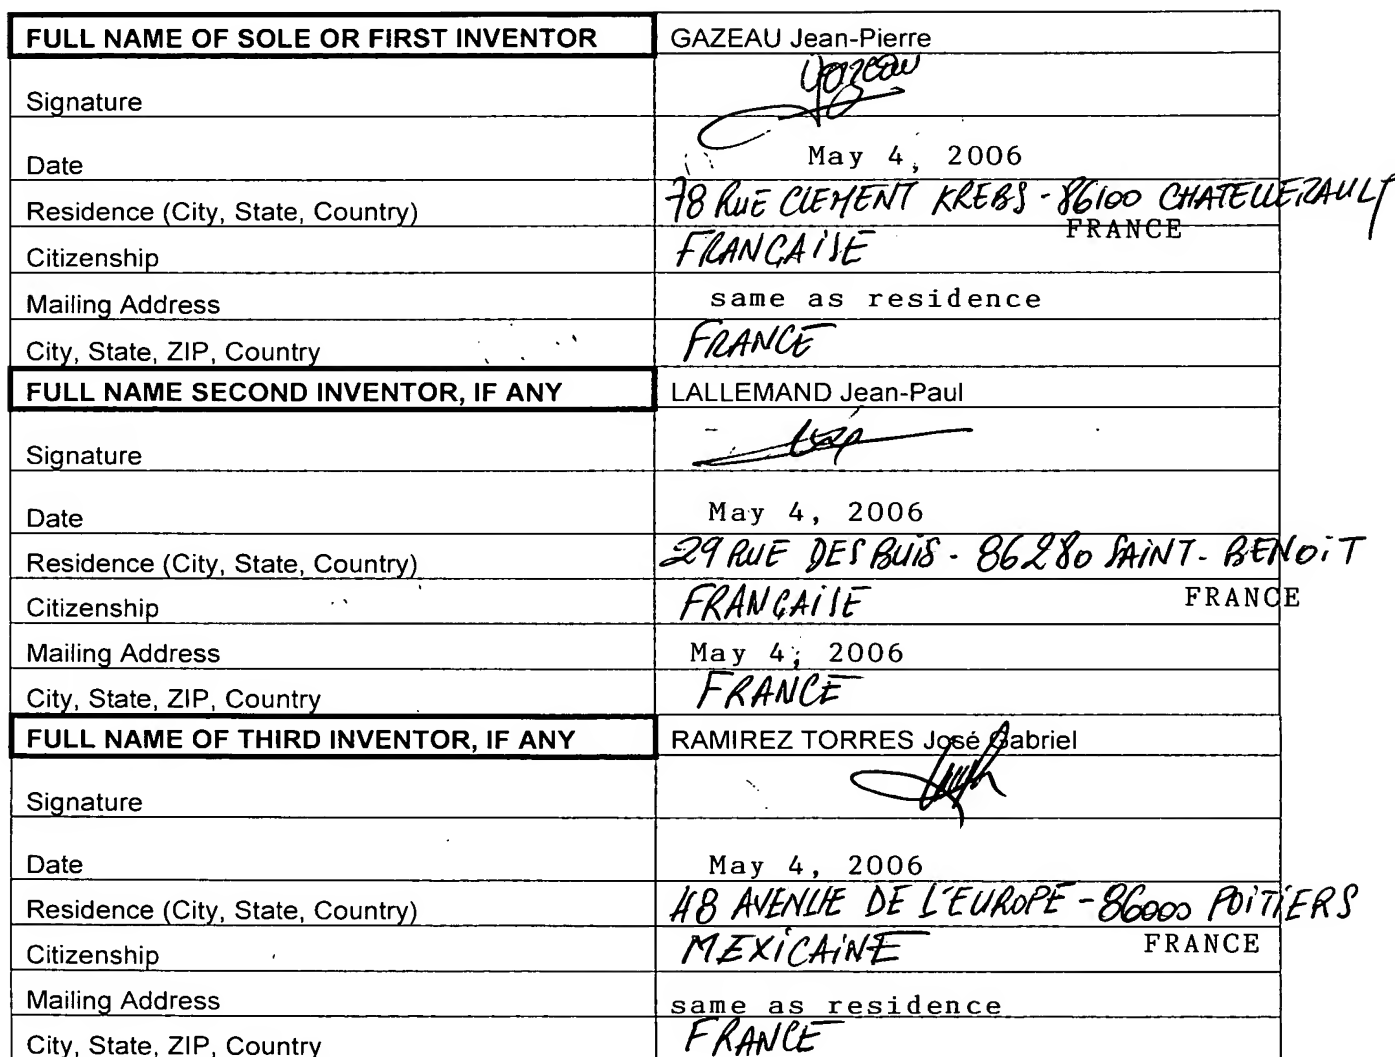 FULL NAME OF SOLE OR FIRST INVENTOR GAZEAU Jean-Pierre
Signature Gazeau
Date May 4, 2006
Residence (City, State, Country) 78 RUE CLEMENT KREBS - 86100 CHATELLERAULT
FRANCE
Citizenship FRANÇAISE
Mailing Address same as residence
City, State, ZIP, Country FRANCE
FULL NAME SECOND INVENTOR, IF ANY LALLEMAND Jean-Paul
Signature
Date May 4, 2006
Residence (City, State, Country) 29 RUE DES BUIS - 86280 SAINT-BENOIT
Citizenship FRANÇAISE FRANCE
Mailing Address May 4, 2006
City, State, ZIP, Country FRANCE
FULL NAME OF THIRD INVENTOR, IF ANY RAMIREZ TORRES José Gabriel
Signature
Date May 4, 2006
Residence (City, State, Country) 48 AVENUE DE L'EUROPE - 86000 POITIERS
Citizenship MEXICAINE FRANCE
Mailing Address same as residence
City, State, ZIP, Country FRANCE